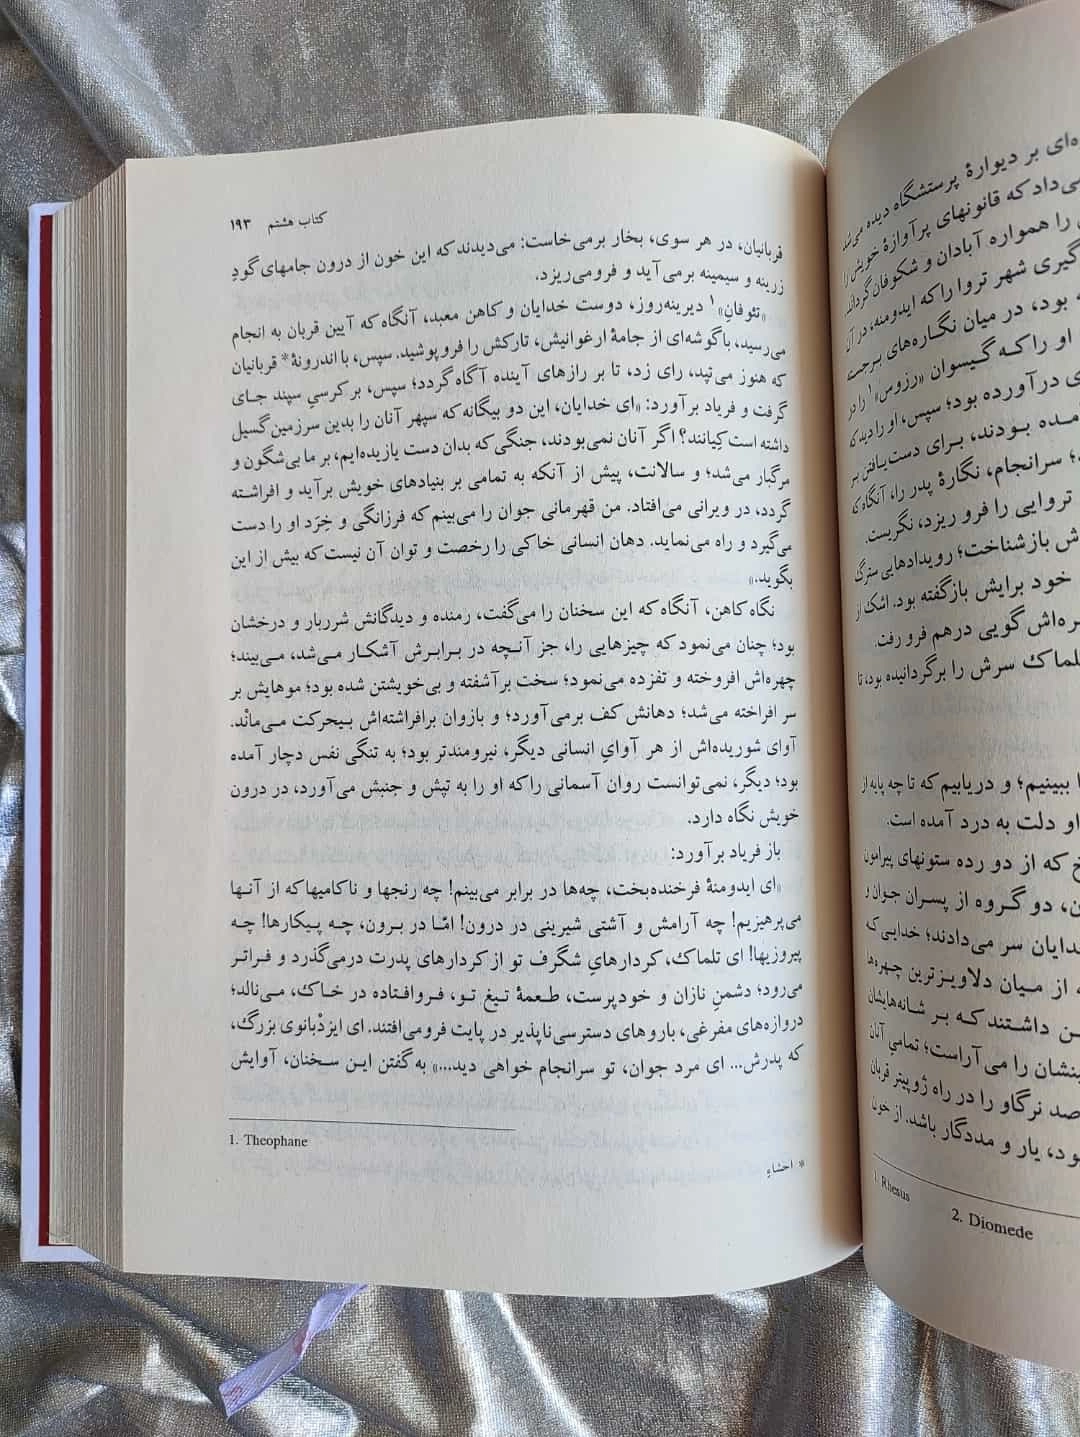 ه‌ای بر دیوارهٔ پرستشگاه دیده می‌شد
می‌داد که قانونهای پرآوازهٔ خویش را
را همواره آبادان و شکوفان گرداند
گیری شهر تروا را که ایدومنه، در آن
بود، در میان نگاره‌های برجسته
او را که گیسوان «رزوس»۱ را در
ی درآورده بود؛ سپس، او را دید که
مده بودند، برای دست‌یافتن بر
سرانجام، نگارهٔ پدر را، آنگاه که
تروایی را فرو ریزد، نگریست.
ش بازشناخت؛ رویدادهایی سترگ
خود برایش بازگفته بود. اشک از
ره‌اش گویی درهم فرو رفت.
تلماک سرش را برگردانیده بود، تا
ببینیم؛ و دریابیم که تا چه پایه از
او دلت به درد آمده است.
خ که از دو رده ستونهای پیرامون
ن، دو گروه از پسران جوان و
خدایان سر می‌دادند؛ خدایی که
از میان دلاویزترین چهره‌ها
ن داشتند که بر شانه‌هایشان
ینشان را می‌آراست؛ تمامیِ آنان
صد نرگاو را در راه ژوپیتر قربان
ود، یار و مددگار باشد. از خون
1. Rhesus
2. Diomede
کتاب هشتم ۱۹۳
قربانیان، در هر سوی، بخار برمی‌خاست: می‌دیدند که این خون از درون جامهای گودِ
زرینه و سیمینه برمی‌آید و فرومی‌ریزد.
«تئوفانِ»۱ دیرینه‌روز، دوست خدایان و کاهن معبد، آنگاه که آیین قربان به انجام
می‌رسید، با گوشه‌ای از جامهٔ ارغوانیش، تارکش را فروپوشید. سپس، با اندرونهٔ* قربانیان
که هنوز می‌تپید، رای زد، تا بر رازهای آینده آگاه گردد؛ سپس، بر کرسیِ سپند جای
گرفت و فریاد برآورد: «ای خدایان، این دو بیگانه که سپهر آنان را بدین سرزمین گسیل
داشته است کِیانند؟ اگر آنان نمی‌بودند، جنگی که بدان دست یازیده‌ایم، بر ما بی‌شگون و
مرگبار می‌شد؛ و سالانت، پیش از آنکه به تمامی بر بنیادهای خویش برآید و افراشته
گردد، در ویرانی می‌افتاد. من قهرمانی جوان را می‌بینم که فرزانگی و خِرَد او را دست
می‌گیرد و راه می‌نماید. دهان انسانی خاکی را رخصت و توان آن نیست که بیش از این
بگوید.»
نگاه کاهن، آنگاه که این سخنان را می‌گفت، رمنده و دیدگانش شرربار و درخشان
بود؛ چنان می‌نمود که چیزهایی را، جز آنچه در برابرش آشکار می‌شد، می‌بیند؛
چهره‌اش افروخته و تفزده می‌نمود؛ سخت برآشفته و بی‌خویشتن شده بود؛ موهایش بر
سر افراخته می‌شد؛ دهانش کف برمی‌آورد؛ و بازوان برافراشته‌اش بیحرکت می‌مانْد.
آوای شوریده‌اش از هر آوایِ انسانی دیگر، نیرومندتر بود؛ به تنگی نفس دچار آمده
بود؛ دیگر، نمی‌توانست روان آسمانی را که او را به تپش و جنبش می‌آورد، در درون
خویش نگاه دارد.
باز فریاد برآورد:
«ای ایدومنهٔ فرخنده‌بخت، چه‌ها در برابر می‌بینم! چه رنجها و ناکامیها که از آنها
می‌پرهیزیم! چه آرامش و آشتی شیرینی در درون! امّا در برون، چه پیکارها! چه
پیروزیها! ای تلماک، کردارهایِ شگرف تو از کردارهای پدرت درمی‌گذرد و فراتر
می‌رود؛ دشمنِ نازان و خودپرست، طعمهٔ تیغ تو، فروافتاده در خاک، می‌نالد؛
دروازه‌های مفرغی، باروهای دسترسی‌ناپذیر در پایت فرومی‌افتند. ای ایزدْبانوی بزرگ،
که پدرش... ای مرد جوان، تو سرانجام خواهی دید...» به گفتن این سخنان، آوایش
1. Theophane
* احشاءِ